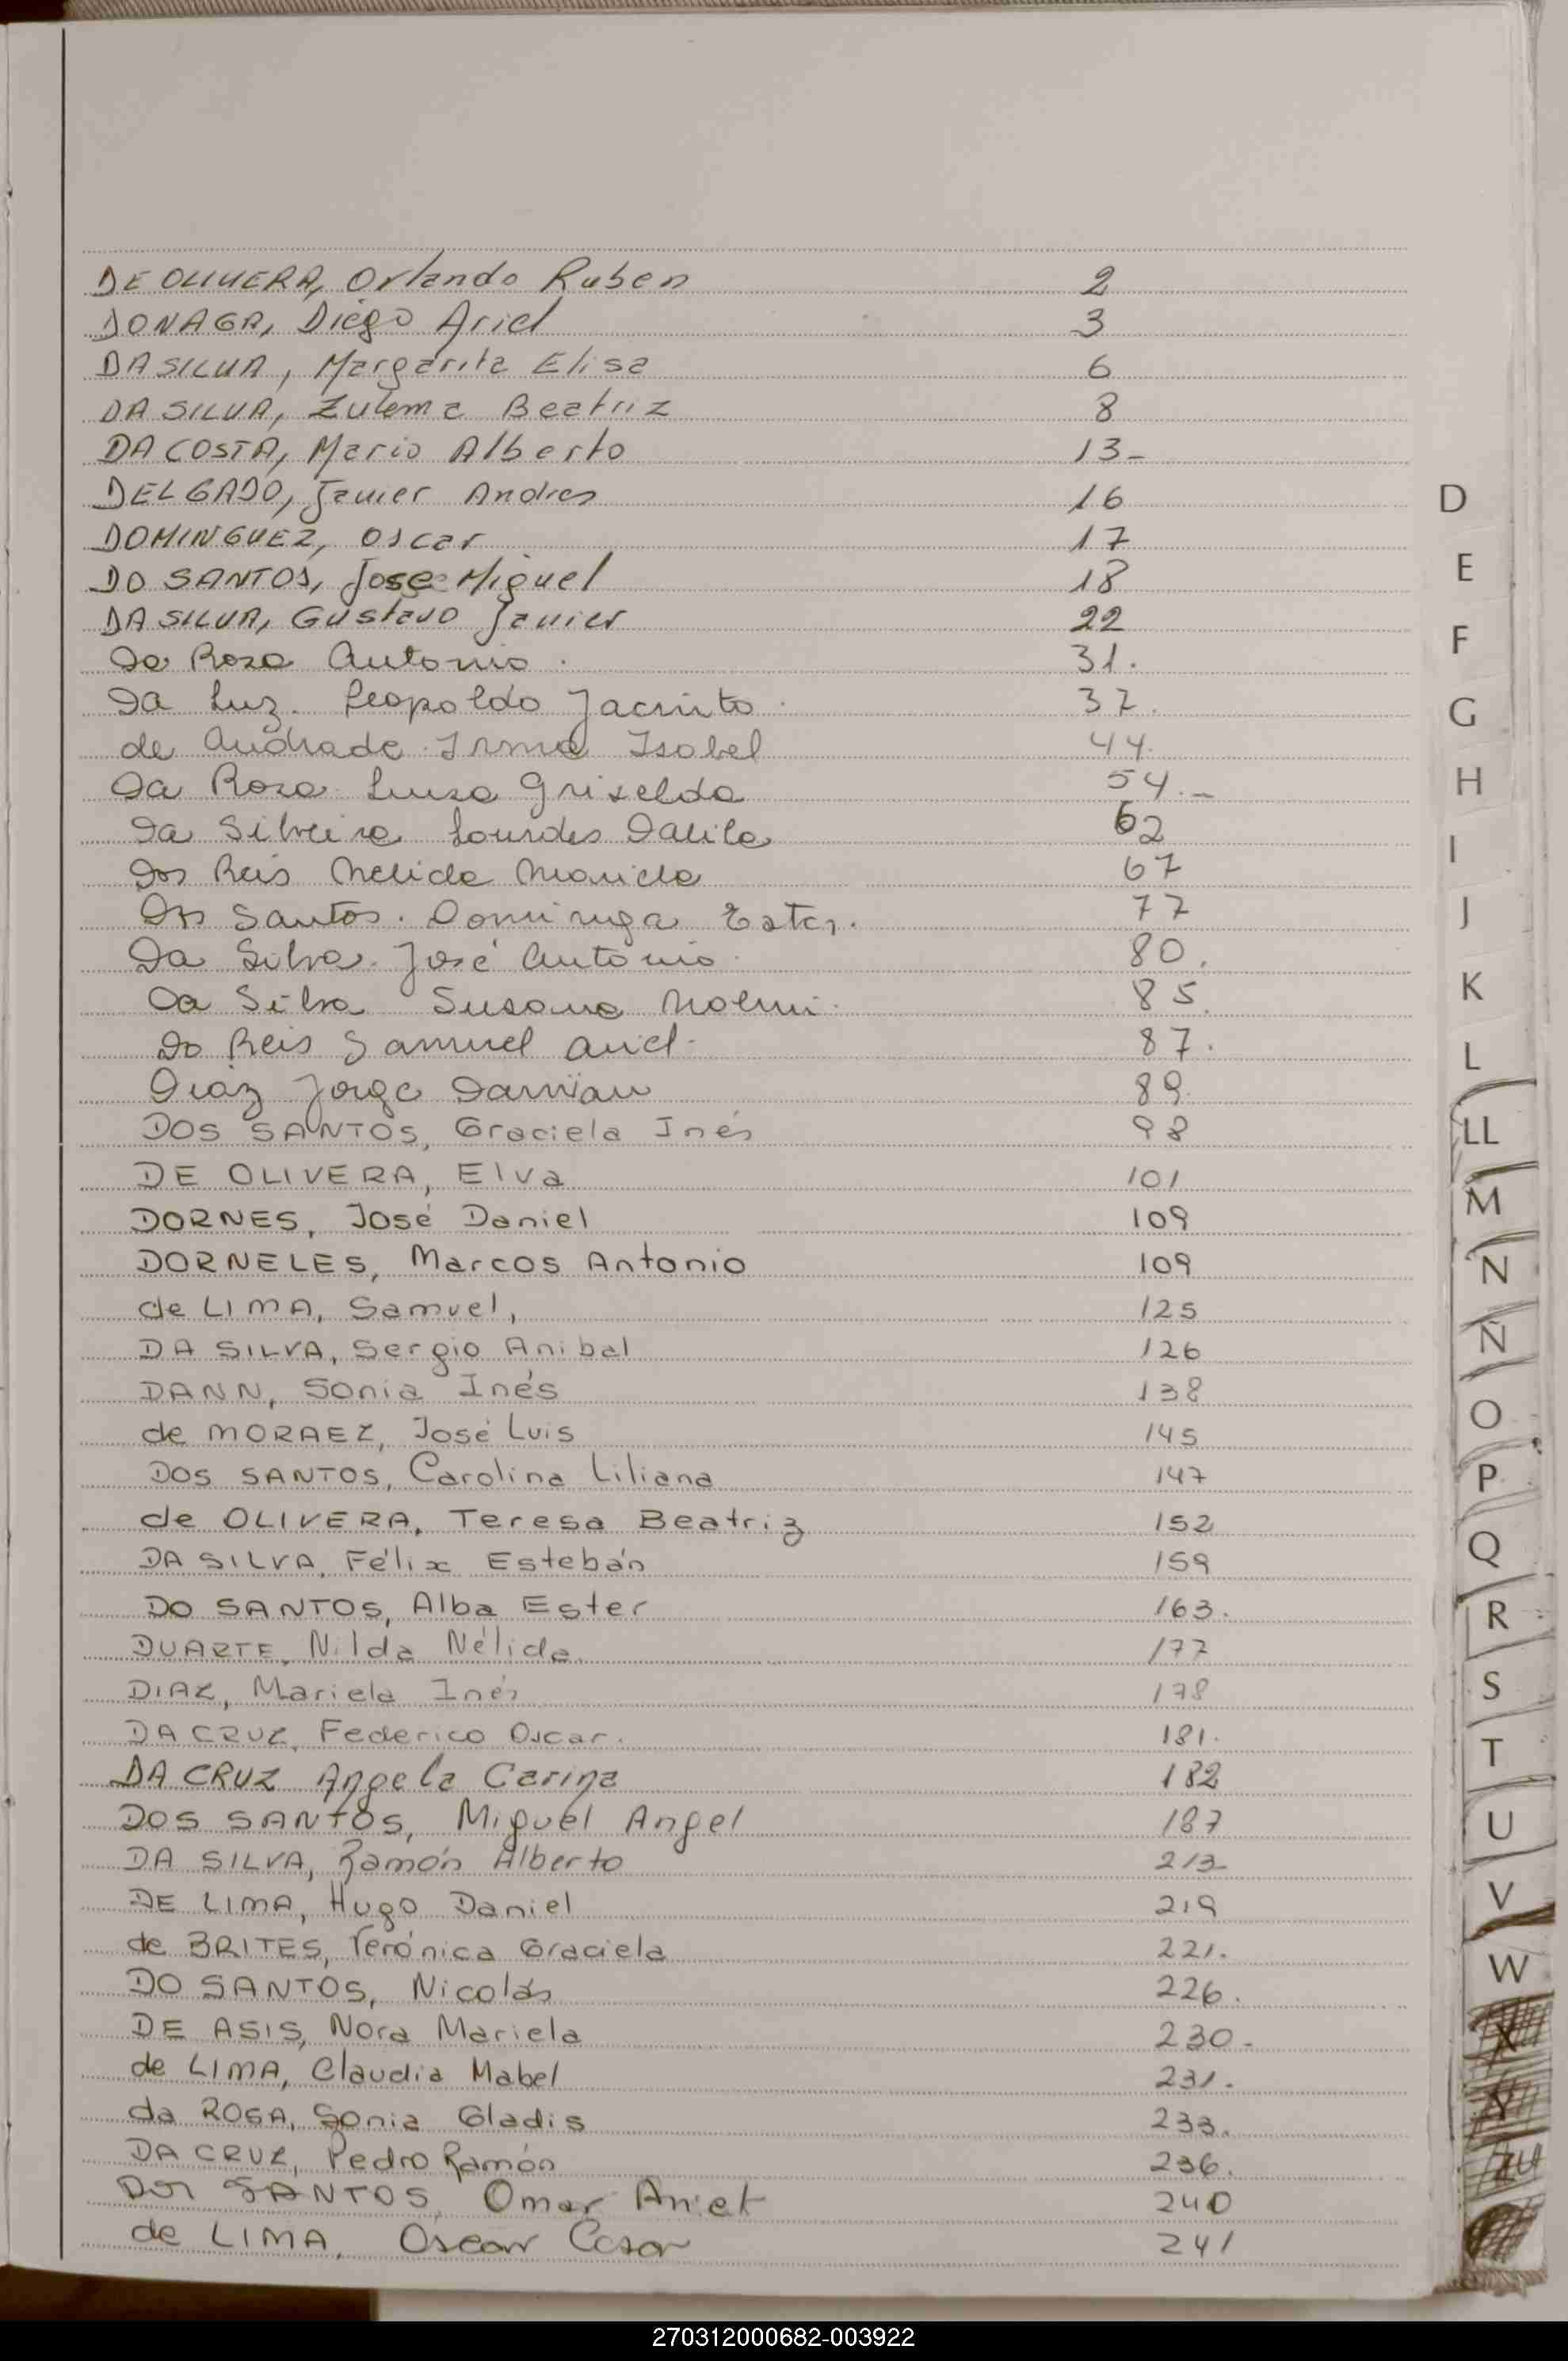 DE OLIVERA, Orlando Ruben 2
DONAGA, Diego Ariel 3
DA SILVA, Margarita Elisa 6
DA SILVA, Zulema Beatriz 8
DA COSTA, Mario Alberto 13-
DELGADO, Javier Andres 16
DOMINGUEZ, Oscar 17
DO SANTOS, Jose Miguel 18
DA SILVA, Gustavo Javier 22
Da Rosa Antonio. 31.
Da Luz. Leopoldo Jacinto. 37.
de Andrade. Irma Isabel 44.
Da Rosa. Luisa Griselda 54.-
Da Silveira Lourdes Dalila 62
Dos Reis Nelida Mariela 67
Dos Santos. Dominga Ester. 77
Da Silva. José Antonio. 80.
Da Silva Susana Noemi. 85.
Do Reis Samuel Ariel. 87.
Diaz Jorge Damian 89.
DOS SANTOS, Graciela Inés 98
DE OLIVERA, Elva 101
DORNES, José Daniel 109
DORNELES, Marcos Antonio 109
de LIMA, Samuel, 125
DA SILVA, Sergio Anibal 126
DANN, Sonia Inés 138
de MORAEZ, José Luis 145
DOS SANTOS, Carolina Liliana 147
de OLIVERA, Teresa Beatriz 152
DA SILVA, Félix Estebán 159
DO SANTOS, Alba Ester 163.
DUARTE, Nilda Nélida. 177
DIAZ, Mariela Inés 178
DA CRUZ, Federico Oscar. 181.
DA CRUZ Angela Carina 182
DOS SANTOS, Miguel Angel 187
DA SILVA, Ramón Alberto 213
DE LIMA, Hugo Daniel 219
de BRITES, Verónica Graciela 221.
DO SANTOS, Nicolás 226.
DE ASIS, Nora Mariela 230.
de LIMA, Claudia Mabel 231.
da ROSA, Sonia Gladis 233.
DA CRUZ, Pedro Ramón 236.
Dos SANTOS, Omar 240
de LIMA, Oscar Cesar 241
D
E
F
G
H
I
J
K
L
LL
M
N
Ñ
O
P
Q
R
S
T
U
V
W
X
Y
270312000682-003922